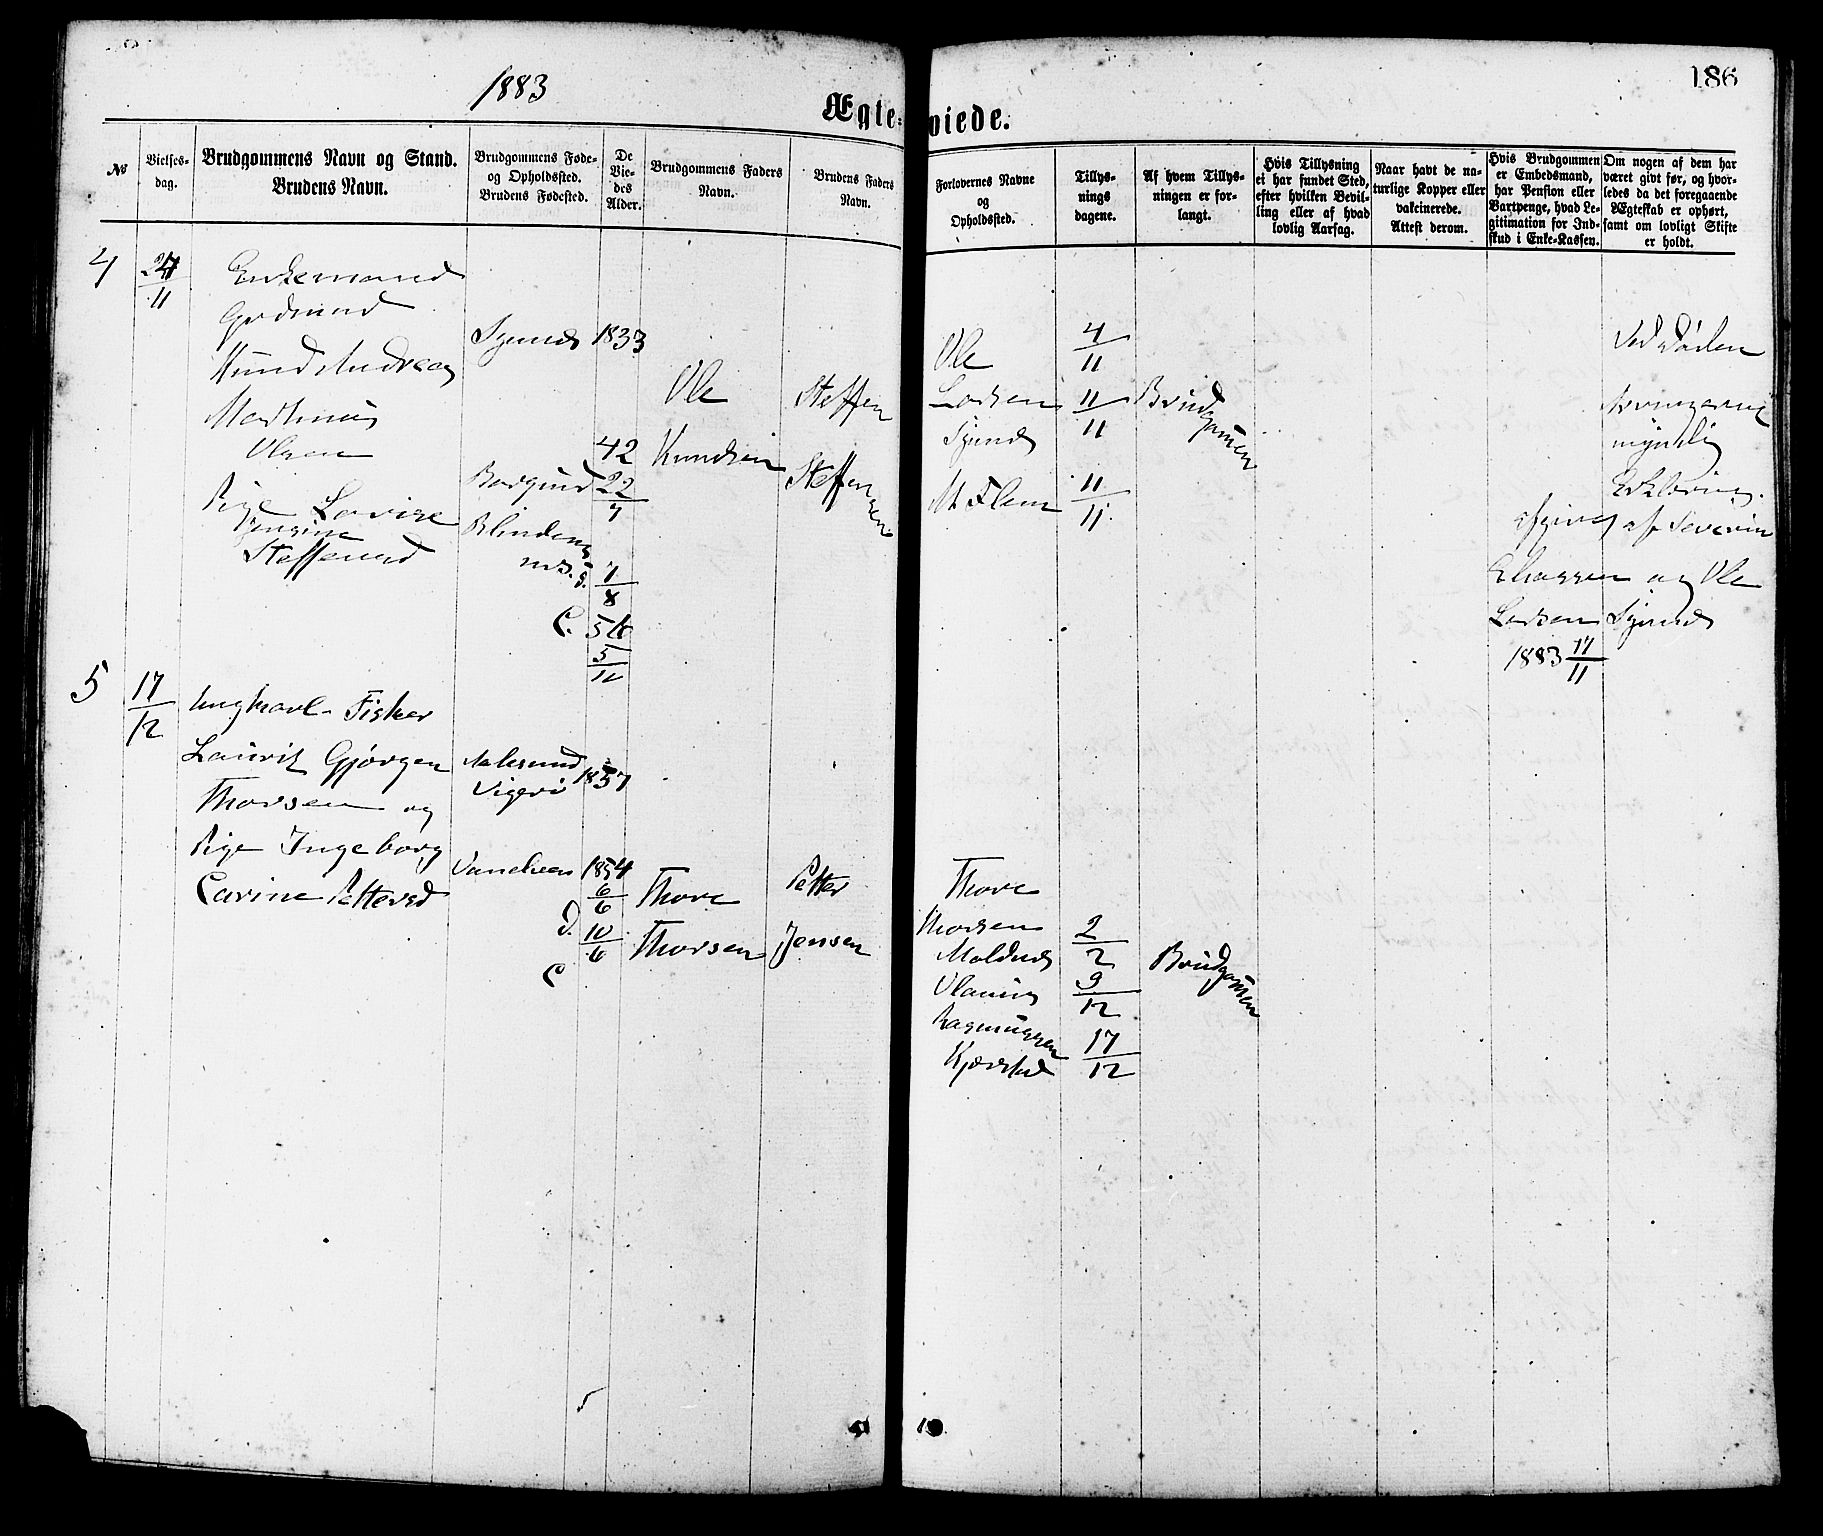 1883
186
Ægte-
viede.
No
Vielses-
dag.
Brudgommens Navn og Stand.
Brudens Navn.
Brudgommens Føde-
og Opholdssted.
Brudens Fødested.
De
Vie-
des
Alder.
Brudgommens Faders
Navn.
Brudens Faders
Navn.
Forlovernes Navne
og
Opholdssted.
Tillys-
nings
dagene.
Af hvem Tillys-
ningen er for-
langt.
Hvis Tillysning
ei har fundet Sted,
efter hvilken Bevil-
ling eller af hvad
lovlig Aarsag.
Naar havt de na-
turlige Kopper eller
vakcinerede.
Attest derom.
Hvis Brudgommen
er Embedsmand,
har Pension eller
Vartpenge, hvad Le-
gitimation for Ind-
skud i Enke-Kassen.
Om nogen af dem har
været givt før, og hvor-
ledes da det foregaaende
Ægteskab er ophørt,
samt om lovligt Skifte
er holdt.
4
11
Enkemand
Gudmund
Knud Andreas
Martinus
Olsen
Pige Lovise
Jensine
Steffensd
Synnes
Borgund
Blindem
1833
42
22
7
7
8
C. 54
5
11
Ole
Knudsen
Steffen
Steffensen
Ole
Larsen
Synnes
M Flem
4
11
11
11
11
11
Brudgommen
Ved Døden
myndig
Erklæring
afgivet af Severin
Eliassen og Ole
Larsen Synnes
1883 17
11
5
17
12
Ungkarl Fisker
Laurits Gjørgen
Thorsen og
Pige Ingeborg
Carine Pettersd
Aalesund
Vigerø
1857
1854
6
6
D. 10
6
C
Thore
Thorsen
Petter
Jensen
Thore
Thorsen
Moldnes
Olaus
Rasmussen
Kjerstad
2
2
9
12
17
12
Brudgommen